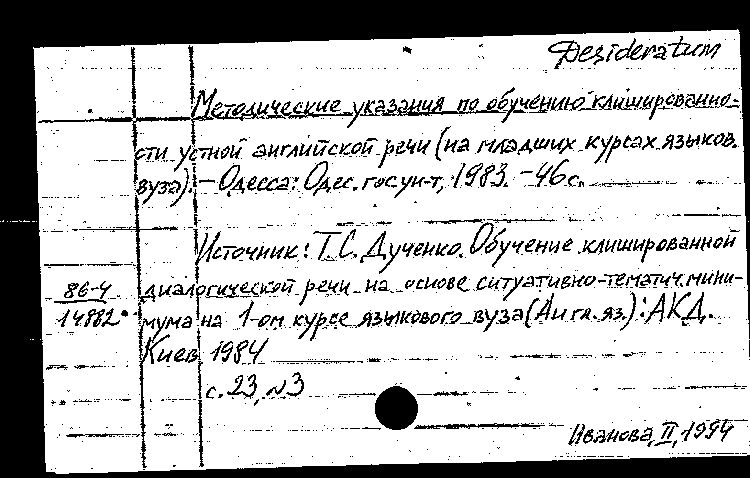 Desideratum
Методические указания по обучению клишированно-
сти устной английской речи (на младших курсах языков.
вуза). – Одесса: Одес. гос ун-т, 1983. – 46 с.
Источник: Т.С. Дученко. Обучение клишированной
86-4 диалогической речи на основе ситуативно-тематич. мини-
14882 мума на 1-ом курсе языкового вуза (Англ. яз.): АКД.
Киев 1984
с. 23, №3
Иванова, II, 1994